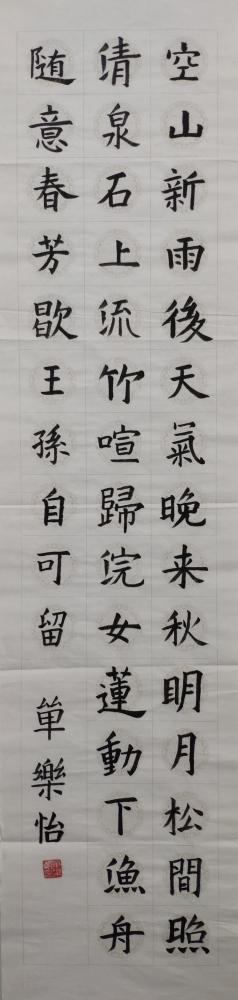 空山新雨後天氣晚来秋明月松間照
清泉石上流竹喧歸浣女蓮動下漁舟
随意春芳歇王孫自可留 单樂怡